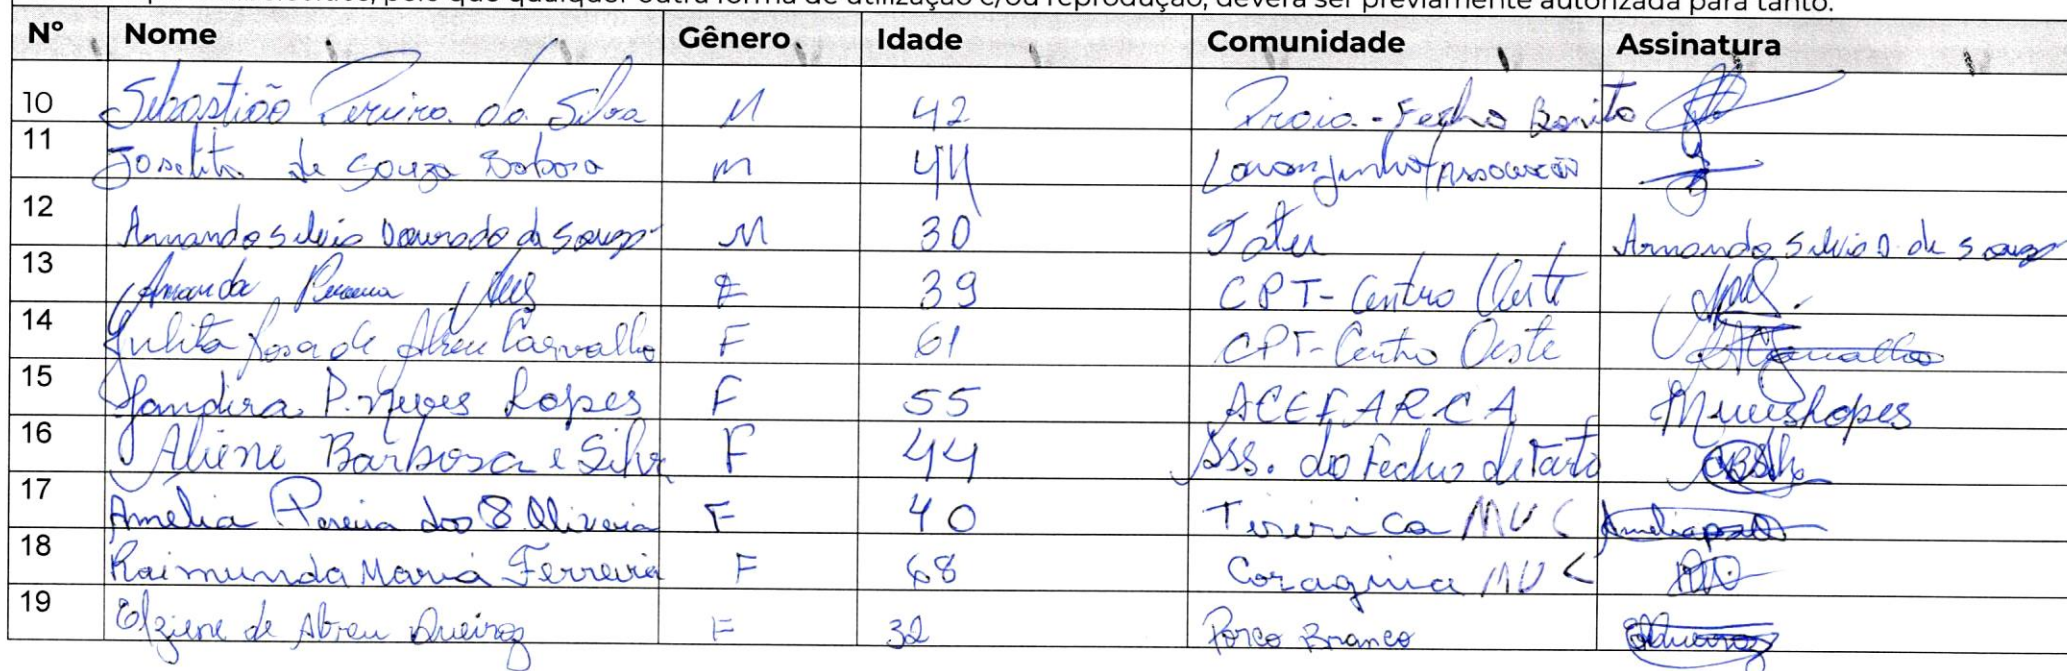 pelo que qualquer outra forma de utilização e/ou reprodução, deverá ser previamente autorizada para tanto.
Nº Nome Gênero Idade Comunidade Assinatura
10 Sebastião Pereira da Silva M 42 Praia - Fecho Bonito
11 Joselito de Souza Barbosa m 44 Laranjinha/Associação
12 Armando Silvio Dourado de Souza M 30 Tatu Armando Silvio D. de Souza
13 Amanda F 39 CPT - Centro Oeste
14 Julita Rosa de Abreu Carvalho F 61 CPT - Centro Oeste Carvalho
15 Jandira P. Neves Lopes F 55 ACEFARCA Neveslopes
16 Aliene Barbosa e Silva F 44 Ass. do Fecho de
17 Amelia Pereira dos S Oliveira F 40 Tiririca MVC
18 Raimunda Maria Ferreira F 68 MVC
19 Elziene de Abreu Queiroz F 32 Porco Branco